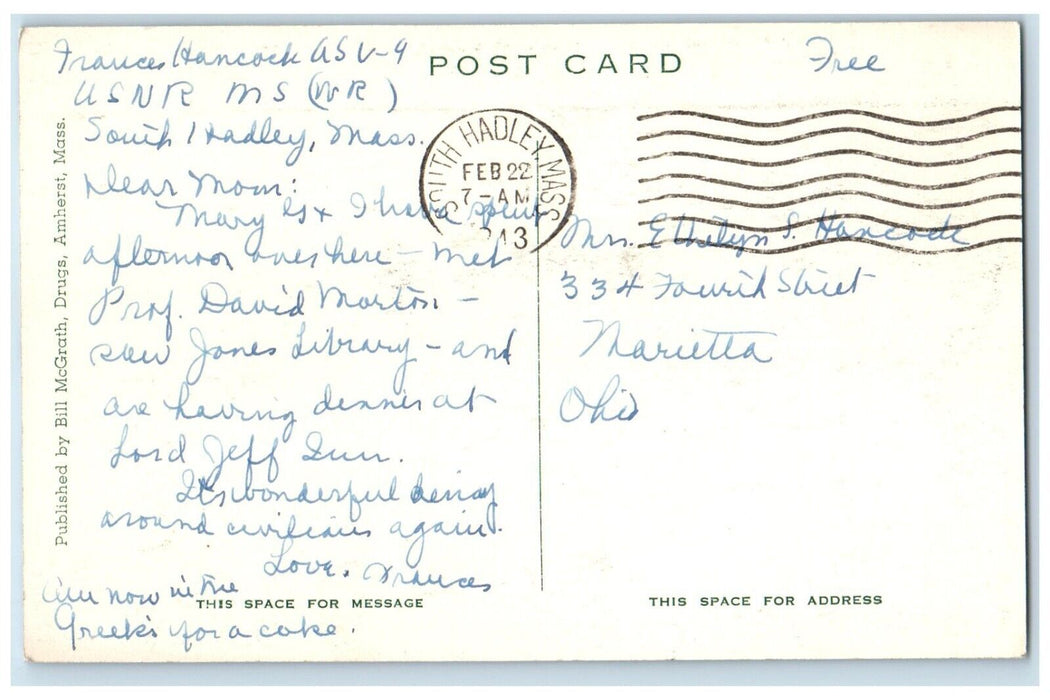 Frances Hancock ASV-9
USNR MS (WR)
South Hadley, Mass.
POST CARD
Free
SOUTH HADLEY, MASS.
FEB 22
7-AM
1943
Dear Mom:
Mary G + I have spent
afternoon over here - met
Prof. David Morton -
saw Jones Library - and
are having dinner at
Lord Jeff Inn.
It's wonderful being
around civilians again.
Love, Frances
Am now in the
Greek's for a coke.
THIS SPACE FOR MESSAGE
Mrs. Ethelyn S. Hancock
334 Fourth Street
Marietta
Ohio
THIS SPACE FOR ADDRESS
Published by Bill McGrath, Drugs, Amherst, Mass.